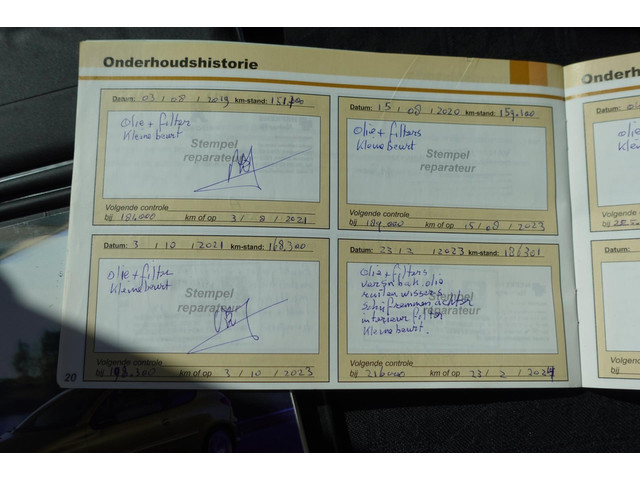 Onderhoudshistorie
Datum: 03 / 08 / 2019 km-stand: 151.700
Olie + filter
Kleinebeurt
Stempel
reparateur
Volgende controle
bij 184000 km of op 3 / 8 / 2021
Datum: 15 / 08 / 2020 km-stand: 159.100
Olie + filters
Kleinebeurt
Stempel
reparateur
Volgende controle
bij 189.000 km of op 15 / 08 / 2023
Datum: 3 / 10 / 2021 km-stand: 168.300
Olie + filter
Kleinebeurt
Stempel
reparateur
Volgende controle
bij 198.300 km of op 3 / 10 / 2023
Datum: 23 / 2 / 2023 km-stand: 186301
Olie + filters
versn bak olie
ruitenwissers
schijfremmen achter
interieur filter
Kleinebeurt.
Stempel
reparateur
Volgende controle
bij 216000 km of op 23 / 2 / 2024
20
Onderh